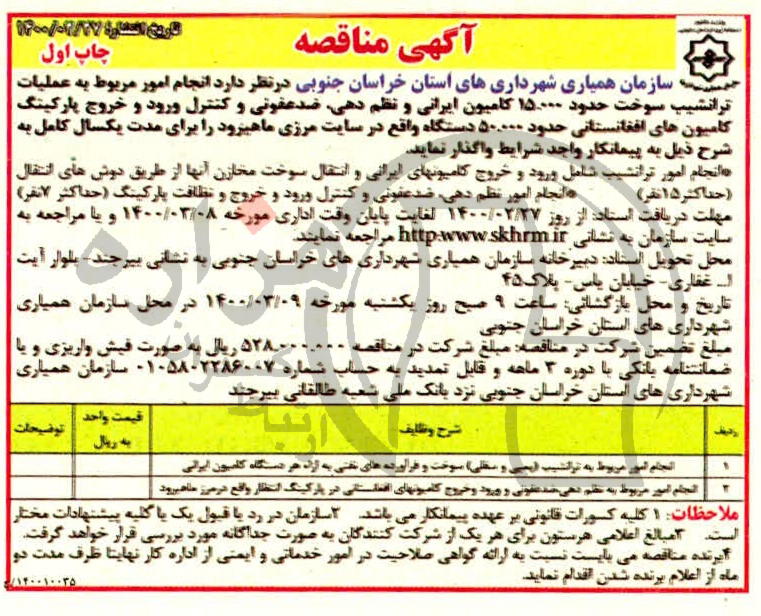 تاریخ انتشار: ۱۴۰۰/۰۲/۲۷
آگهی مناقصه
چاپ اول
سازمان همیاری شهرداری های استان خراسان جنوبی درنظر دارد انجام امور مربوط به عملیات
ترانشیپ سوخت حدود ۱۵.۰۰۰ کامیون ایرانی و نظم دهی، ضدعفونی و کنترل ورود و خروج پارکینگ
کامیون های افغانستانی حدود ۵۰.۰۰۰ دستگاه واقع در سایت مرزی ماهیرود را برای مدت یکسال کامل به
شرح ذیل به پیمانکار واجد شرایط واگذار نماید.
*انجام امور ترانشیپ شامل ورود و خروج کامیونهای ایرانی و انتقال سوخت مخازن آنها از طریق دوش های انتقال
(حداکثر۱۵نفر) *انجام امور نظم دهی، ضدعفونی و کنترل ورود و خروج و نظافت پارکینگ (حداکثر ۷نفر)
مهلت دریافت اسناد: از روز ۱۴۰۰/۰۲/۲۷ لغایت پایان وقت اداری مورخه ۱۴۰۰/۰۳/۰۸ و یا مراجعه به
سایت سازمان به نشانی http:www.skhrm.ir مراجعه نمایند.
محل تحویل اسناد: دبیرخانه سازمان همیاری شهرداری های خراسان جنوبی به نشانی بیرجند- بلوار آیت
ا... غفاری- خیابان یاس- پلاک۴۵
تاریخ و محل بازگشائی: ساعت ۹ صبح روز یکشنبه مورخه ۱۴۰۰/۰۳/۰۹ در محل سازمان همیاری
شهرداری های استان خراسان جنوبی
مبلغ تضمین شرکت در مناقصه: مبلغ شرکت در مناقصه ۵۲۸.۰۰۰.۰۰۰ ریال بصورت فیش واریزی و یا
ضمانتنامه بانکی با دوره ۳ ماهه و قابل تمدید به حساب شماره ۰۱۰۵۸۰۲۲۸۶۰۰۷ سازمان همیاری
شهرداری های استان خراسان جنوبی نزد بانک ملی شعبه طالقانی بیرجند
ردیف شرح وظایف قیمت واحد به ریال توضیحات
۱ انجام امور مربوط به ترانشیپ (پمپی و سقلی) سوخت و فرآورده های نفتی به ازاء هر دستگاه کامیون ایرانی
۲ انجام امور مربوط به نظم دهی،ضدعفونی و ورود وخروج کامیونهای افغانستانی در پارکینگ انتظار واقع درمرز ماهیرود
ملاحظات: ۱ کلیه کسورات قانونی بر عهده پیمانکار می باشد. ۲سازمان در رد یا قبول یک یا کلیه پیشنهادات مختار
است. ۳مبالغ اعلامی هرستون برای هر یک از شرکت کنندگان به صورت جداگانه مورد بررسی قرار خواهد گرفت.
۴برنده مناقصه می بایست نسبت به ارائه گواهی صلاحیت در امور خدماتی و ایمنی از اداره کار نهایتا ظرف مدت دو
ماه از اعلام برنده شدن اقدام نماید.
۱۴۰۰۱۰۰۳۵/خ
هزاره